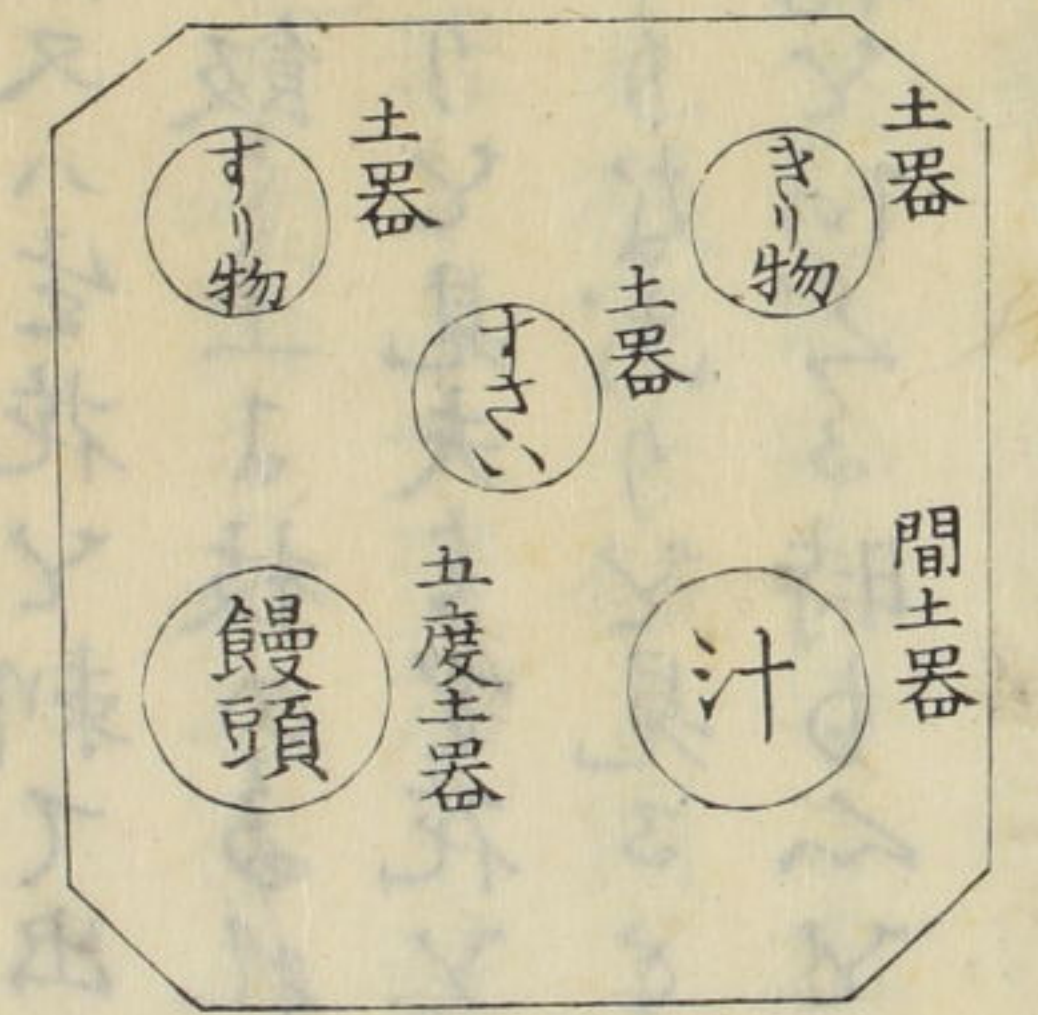 土器
きり物
土器
すさい
土器
すり物
間土器
汁
五度土器
饅頭